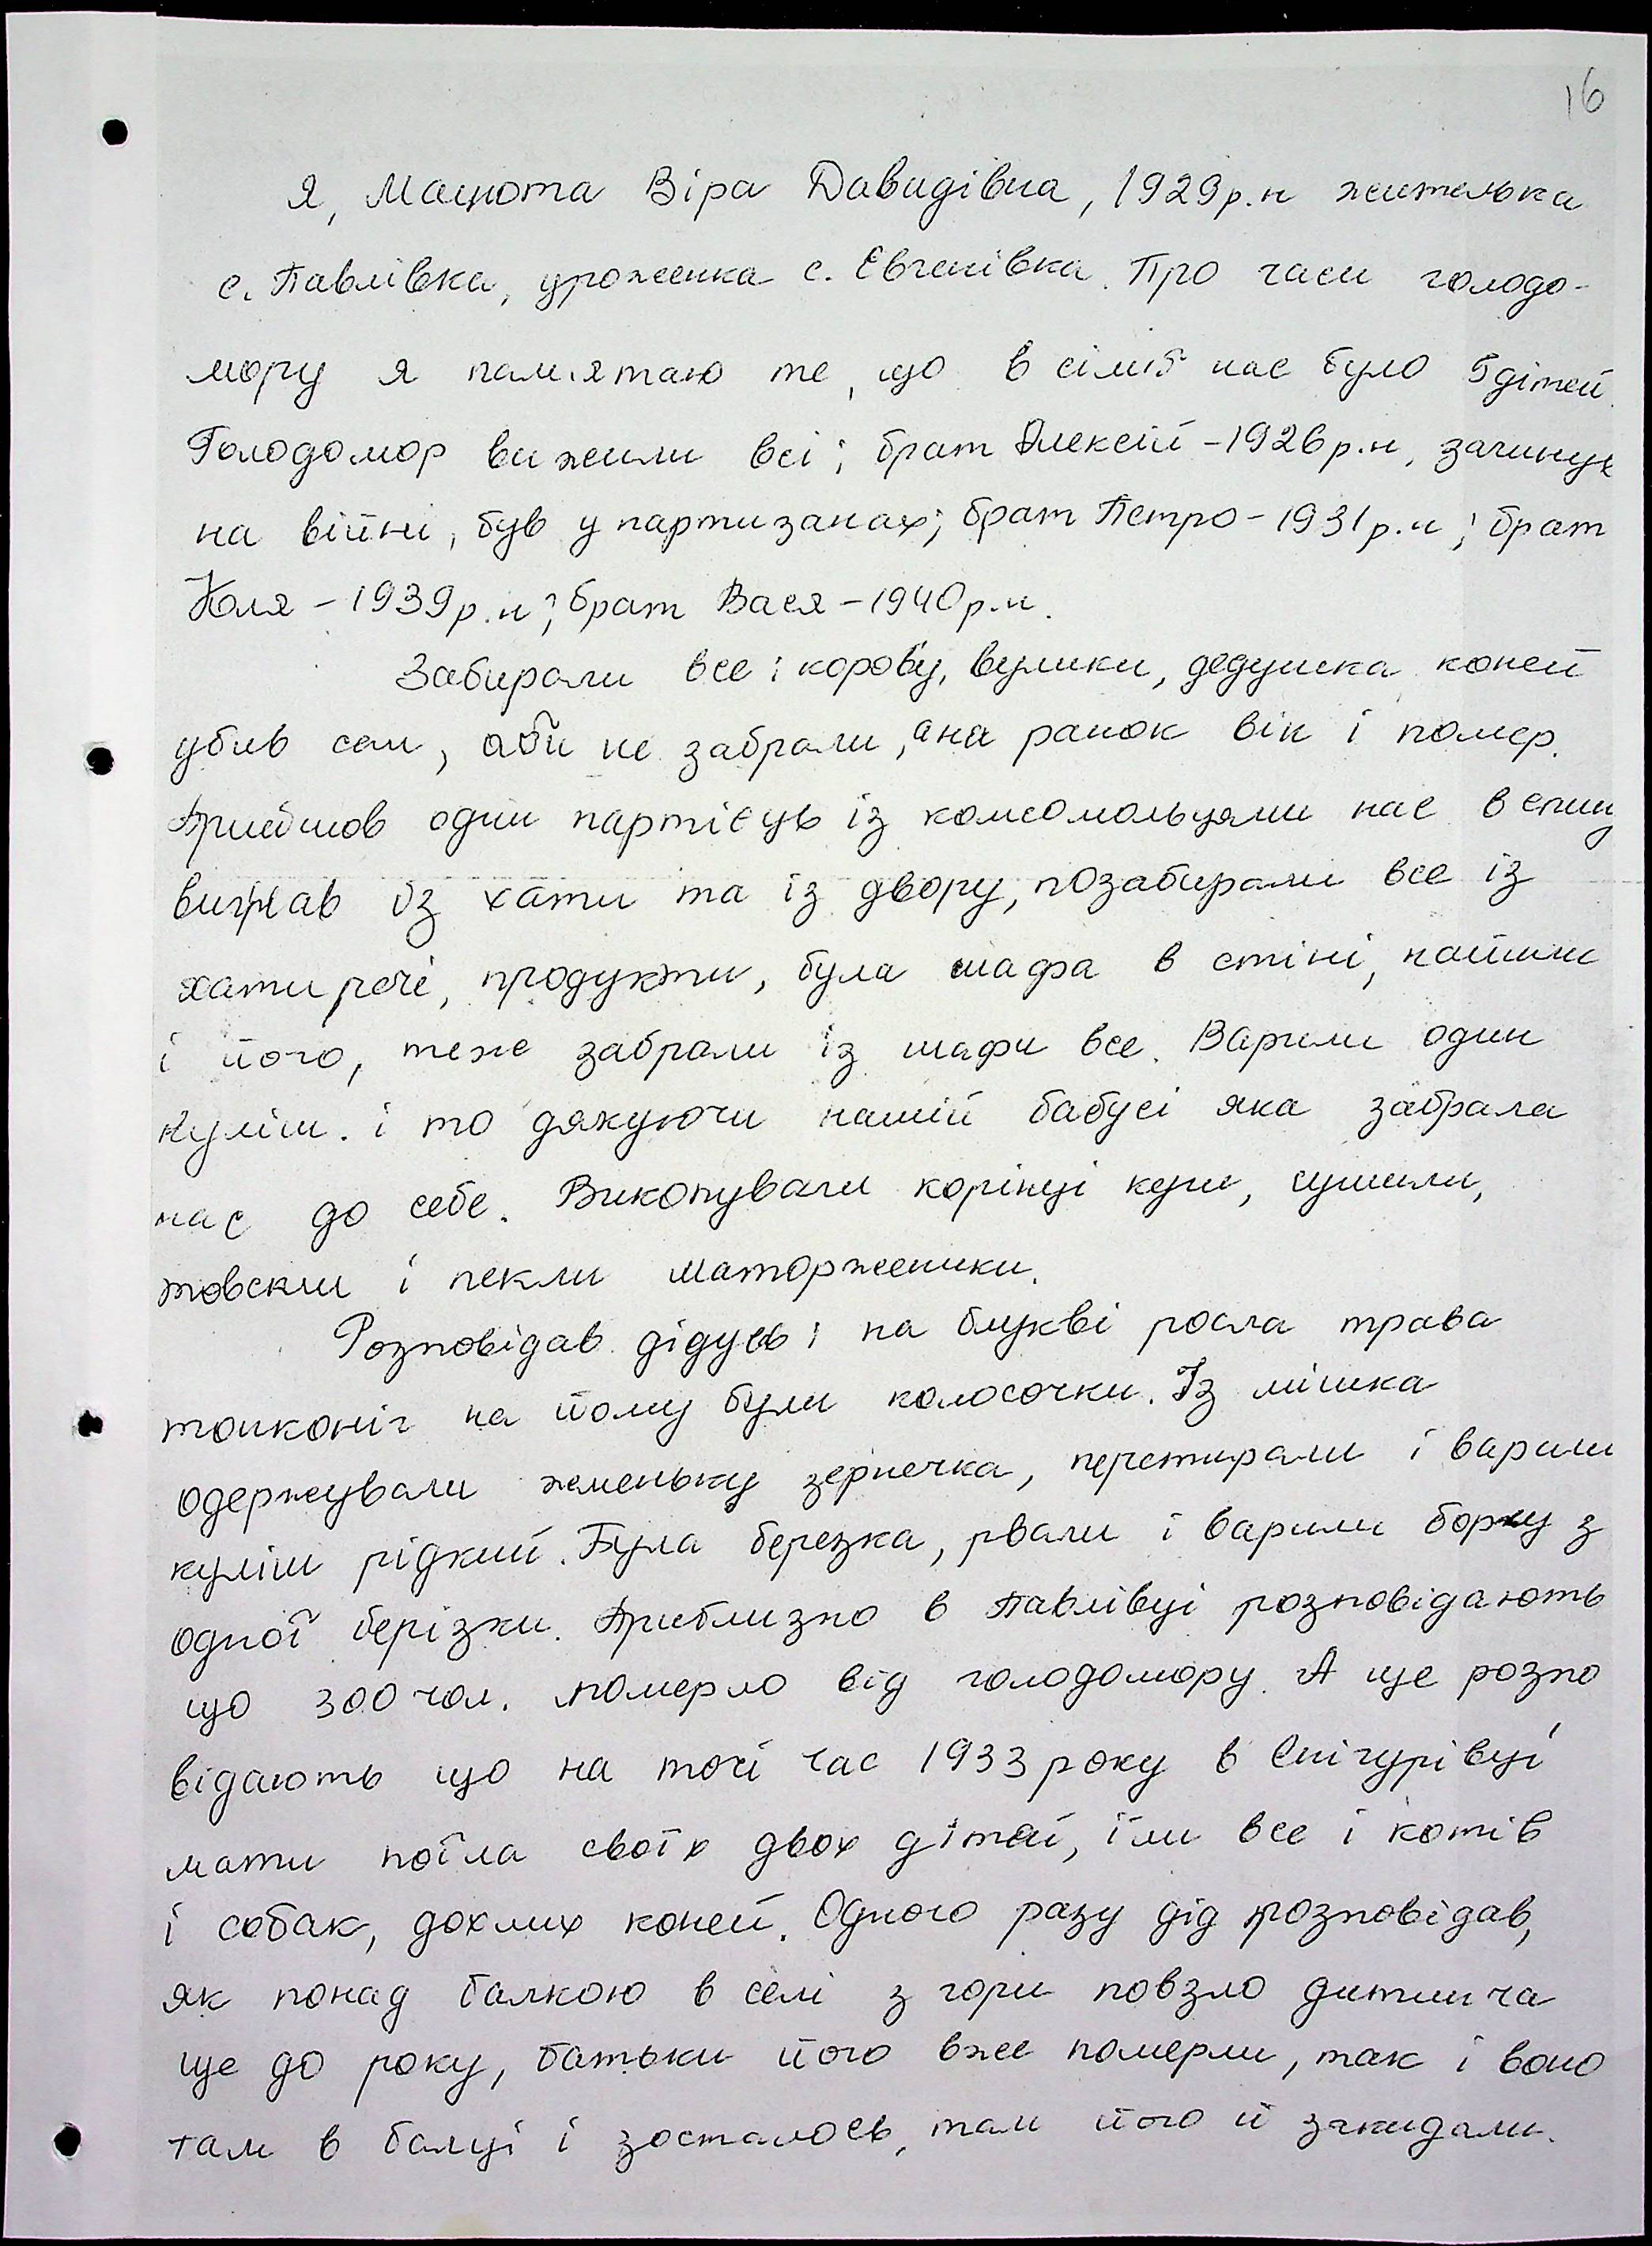 16
Я, Мацюта Віра Давидівна, 1929р.н жителька
с. Павлівка, уроженка с. Євгенівка. Про часи голодо-
мору я пам'ятаю те, що в сім'ї нас було 5 дітей.
Голодомор вижили всі; брат Алексій - 1926 р.н, загинув
на війні, був у партизанах; брат Петро - 1931 р.н; брат
Коля - 1939 р.н; брат Вася - 1940 р.н.
Забирали все: корову, вулики, дедушка коней
убив сам, аби не забрали, а на ранок він і помер.
Прийшов один партієць із комсомольцями нас в спину
вигнав із хати та із двору, позабирали все із
хати речі, продукти, була шафа в стіні, найшли
і його, теже забрали із шафи все. Варили один
куліш. і то дякуючи нашій бабусі яка забрала
нас до себе. Викопували корінці куги, сушили,
товскли і пекли маторженики.
Розповідав дідусь: на букві росла трава
тонконіг на йому були колосочки. Із мішка
одержували жменьку зернечка, перетирали і варили
куліш рідкий. Була березка, рвали і варили борщ з
одної берізки. Приблизно в Павлівці розповідають
що 300 чол. померло від голодомору. А ще розпо
відають що на точі час 1933 року в Снігурівці
мати поїла своїх двох дітей, їли все і котів
і собак, дохлих коней. Одного разу дід розповідав,
як понад балкою в селі з гори повзло дитинча
ще до року, батьки його вже померли, так і воно
там в балці і зосталось, там його й закидали.